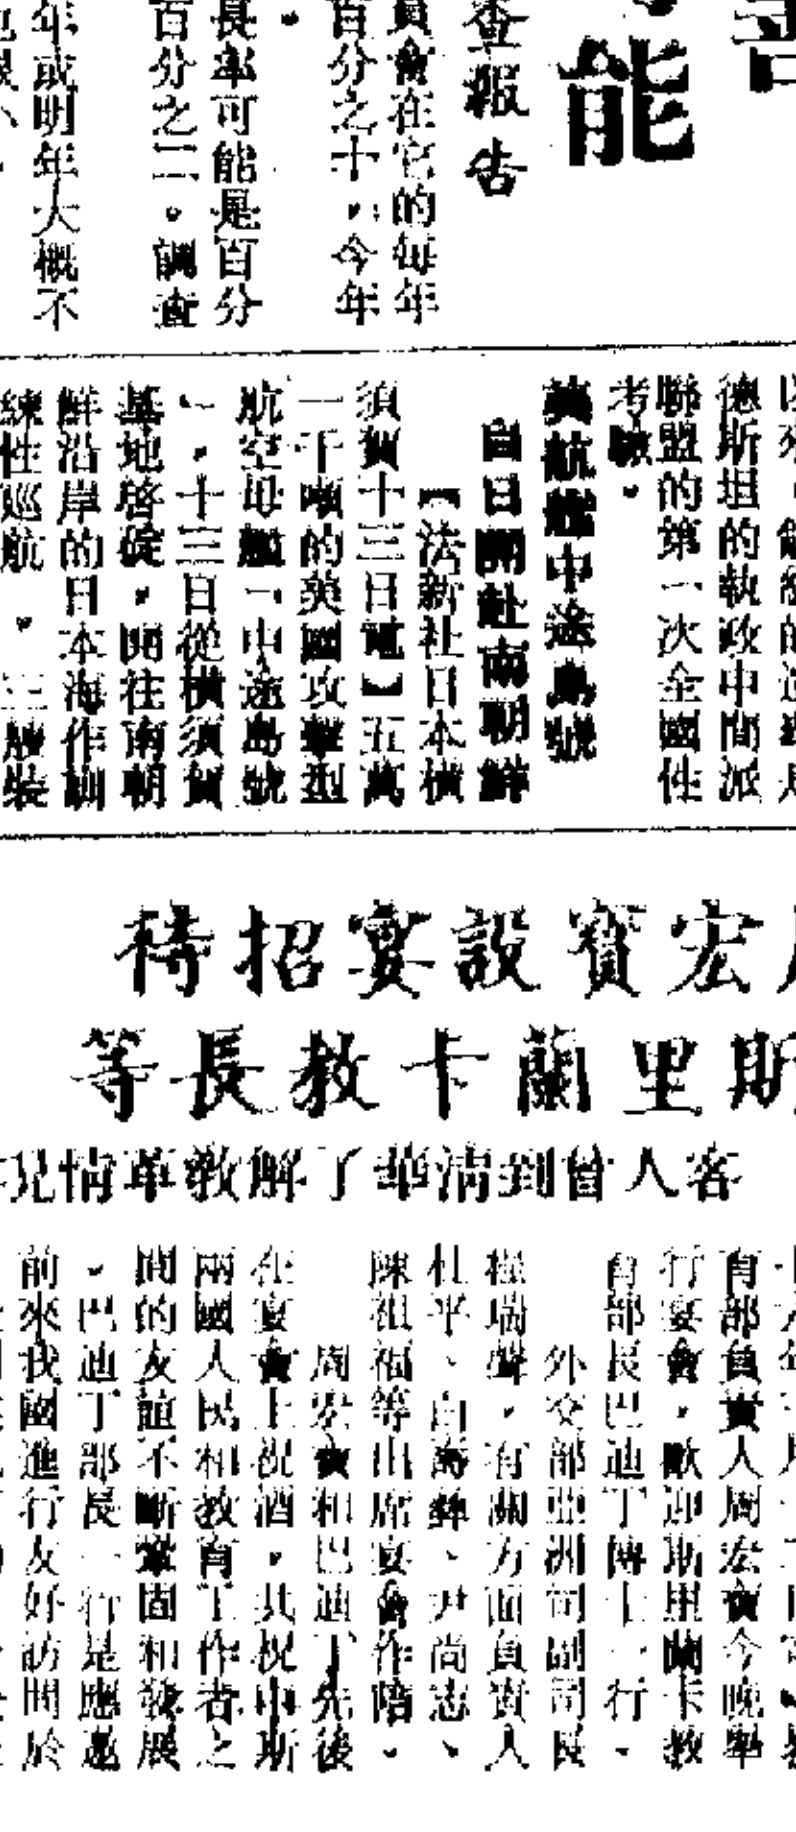 能
查報告
員會在它的每年
百分之十，今年
長率可能是百分
百分之三。調查
年或明年大概不
德斯坦的執政中間派
聯盟的第一次全國性
考驗。
美航艦中途島號
自日開赴南朝鮮
【法新社日本橫
須賀十三日電】五萬
一千噸的美國攻擊型
航空母艦「中途島號
」，十三日從橫須賀
基地啓碇，開往南朝
鮮沿岸的日本海作訓
練性巡航。三艘裝
宏寶設宴招待
斯里蘭卡教長等
客人曾到清華了解教革情況
育部負責人周宏寶今晚舉
行宴會，歡迎斯里蘭卡教
育部長巴迪丁博士一行。
外交部亞洲司副司長
程瑞聲，有關方面負責人
杜平、白壽彝、尹尚志、
陳祖福等出席宴會作陪。
周宏寶和巴迪丁先後
在宴會上祝酒，共祝中斯
兩國人民和教育工作者之
間的友誼不斷鞏固和發展
。巴迪丁部長一行是應邀
前來我國進行友好訪問於